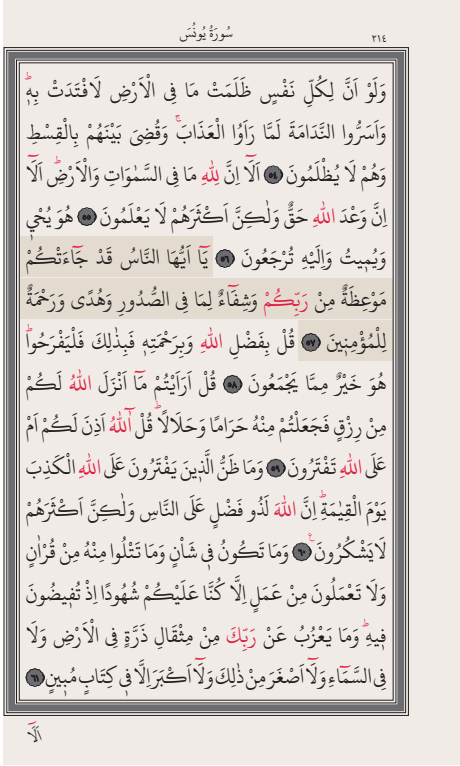 ٢١٤ سُورَةُ يُونُسَ
وَلَوْ اَنَّ لِكُلِّ نَفْسٍ ظَلَمَتْ مَا فِى الْاَرْضِ لَافْتَدَتْ بِهٖۜ
وَاَسَرُّوا النَّدَامَةَ لَمَّا رَاَوُا الْعَذَابَۚ وَقُضِىَ بَيْنَهُمْ بِالْقِسْطِ
وَهُمْ لَا يُظْلَمُونَ ﴿٥٤﴾ اَلَٓا اِنَّ لِلّٰهِ مَا فِى السَّمٰوَاتِ وَالْاَرْضِۜ اَلَٓا
اِنَّ وَعْدَ اللّٰهِ حَقٌّ وَلٰكِنَّ اَكْثَرَهُمْ لَا يَعْلَمُونَ ﴿٥٥﴾ هُوَ يُحْيٖ
وَيُمٖيتُ وَاِلَيْهِ تُرْجَعُونَ ﴿٥٦﴾ يَٓا اَيُّهَا النَّاسُ قَدْ جَٓاءَتْكُمْ
مَوْعِظَةٌ مِنْ رَبِّكُمْ وَشِفَٓاءٌ لِمَا فِى الصُّدُورِ وَهُدًى وَرَحْمَةٌ
لِلْمُؤْمِنٖينَ ﴿٥٧﴾ قُلْ بِفَضْلِ اللّٰهِ وَبِرَحْمَتِهٖ فَبِذٰلِكَ فَلْيَفْرَحُواۜ
هُوَ خَيْرٌ مِمَّا يَجْمَعُونَ ﴿٥٨﴾ قُلْ اَرَاَيْتُمْ مَٓا اَنْزَلَ اللّٰهُ لَكُمْ
مِنْ رِزْقٍ فَجَعَلْتُمْ مِنْهُ حَرَامًا وَحَلَالًاۜ قُلْ آٰللّٰهُ اَذِنَ لَكُمْ اَمْ
عَلَى اللّٰهِ تَفْتَرُونَ ﴿٥٩﴾ وَمَا ظَنُّ الَّذٖينَ يَفْتَرُونَ عَلَى اللّٰهِ الْكَذِبَ
يَوْمَ الْقِيٰمَةِۜ اِنَّ اللّٰهَ لَذُو فَضْلٍ عَلَى النَّاسِ وَلٰكِنَّ اَكْثَرَهُمْ
لَا يَشْكُرُونَ۟ ﴿٦٠﴾ وَمَا تَكُونُ فٖى شَاْنٍ وَمَا تَتْلُوا مِنْهُ مِنْ قُرْاٰنٍ
وَلَا تَعْمَلُونَ مِنْ عَمَلٍ اِلَّا كُنَّا عَلَيْكُمْ شُهُودًا اِذْ تُفٖيضُونَ
فٖيهِۜ وَمَا يَعْزُبُ عَنْ رَبِّكَ مِنْ مِثْقَالِ ذَرَّةٍ فِى الْاَرْضِ وَلَا
فِى السَّمَٓاءِ وَلَٓا اَصْغَرَ مِنْ ذٰلِكَ وَلَٓا اَكْبَرَ اِلَّا فٖى كِتَابٍ مُبٖينٍ ﴿٦١﴾
اَلَٓا